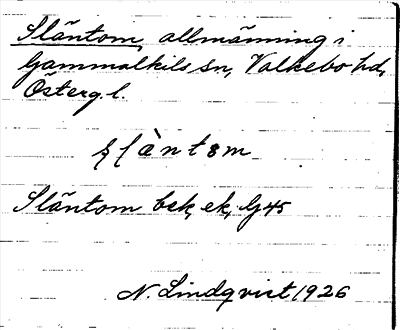 Släntom, allmänning i
Gammalkils sn, Valkebo hd,
Österg. l.
slàntom
Släntom bek, ek, G45
N. Lindqvist 1926